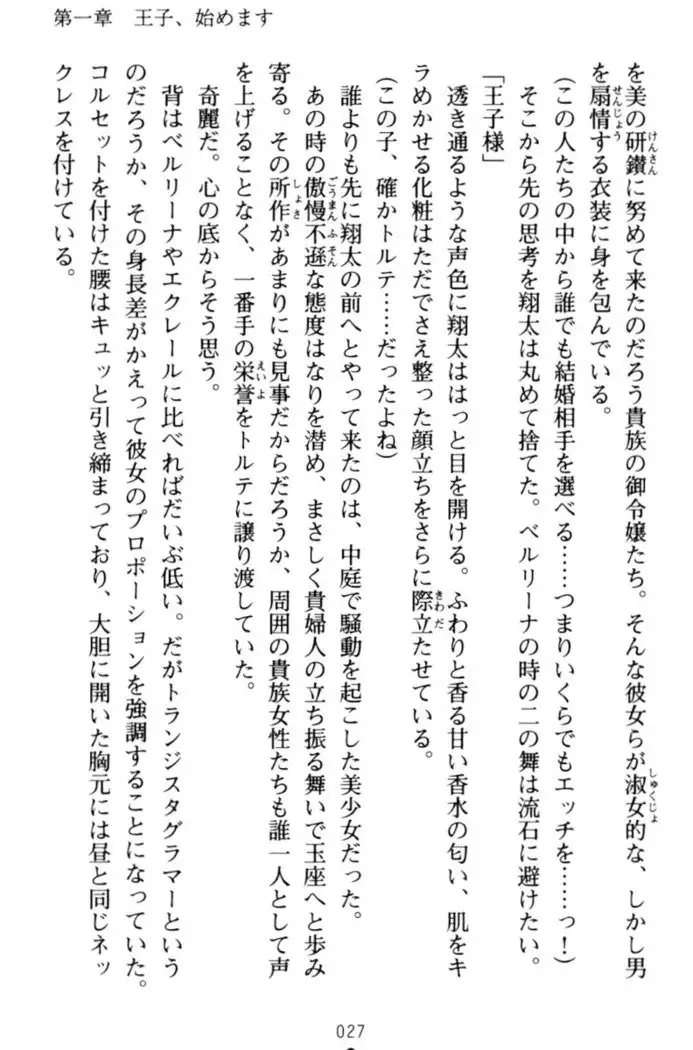 第一章　王子、始めます
を美の研鑽に努めて来たのだろう貴族の御令嬢たち。そんな彼女らが淑女的な、しかし男
を扇情する衣装に身を包んでいる。
（この人たちの中から誰でも結婚相手を選べる……つまりいくらでもエッチを……っ！）
そこから先の思考を翔太は丸めて捨てた。ベルリーナの時の二の舞は流石に避けたい。
「王子様」
透き通るような声色に翔太ははっと目を開ける。ふわりと香る甘い香水の匂い、肌をキ
ラめかせる化粧はただでさえ整った顔立ちをさらに際立たせている。
（この子、確かトルテ……だったよね）
誰よりも先に翔太の前へとやって来たのは、中庭で騒動を起こした美少女だった。
あの時の傲慢不遜な態度はなりを潜め、まさしく貴婦人の立ち振る舞いで玉座へと歩み
寄る。その所作があまりにも見事だからだろうか、周囲の貴族女性たちも誰一人として声
を上げることなく、一番手の栄誉をトルテに譲り渡していた。
奇麗だ。心の底からそう思う。
背はベルリーナやエクレールに比べればだいぶ低い。だがトランジスタグラマーという
のだろうか、その身長差がかえって彼女のプロポーションを強調することになっていた。
コルセットを付けた腰はキュッと引き締まっており、大胆に開いた胸元には昼と同じネッ
クレスを付けている。
027